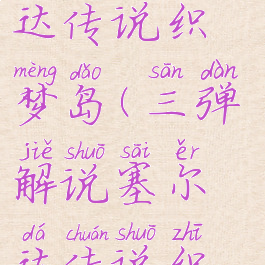 达传说织
mèng dǎo sān dàn
梦岛（三弹
jiě shuō sāi ěr
解说塞尔
dá chuán shuō zhī
达传说织